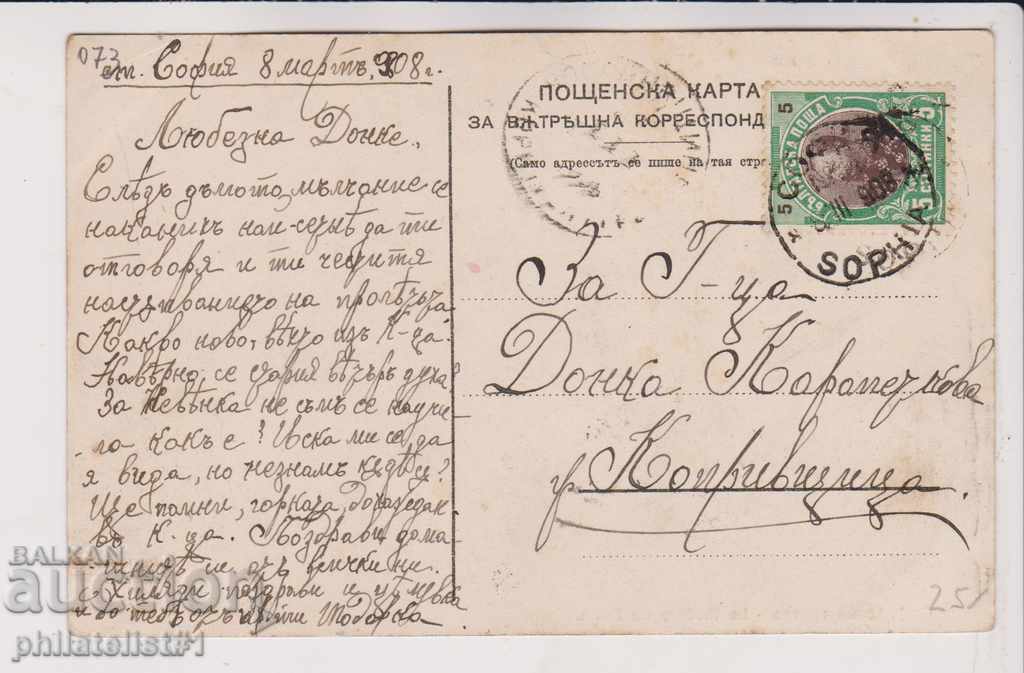 073
ст. София 8 мартъ, 908 г.
Любезна Донке,
Следъ дългото мълчание се
наканихъ най-сетне да ти
отговоря и ти честитя
настъпванието на пролѣтьта
Какво ново, вехто изъ К-ца?
Навѣрно се
За Невѣнка не съмъ се научи
ла какъ е? Иска ми се да
я видя, но незнамъ кѫдѣ е?
Ще помни, горката,
въ К-ца. Поздрави дома
отъ всички ни.
Хиляди поздрави и цѣлувка
и до тебъ отъ Тодорка
ПОЩЕНСКА КАРТА
ЗА ВѪТРѢШНА КОРРЕСПОНД
(Само адрессътъ се пише на тая стр
5
БЪЛГАРСКА ПОЩА
5 СТОТИНКИ 5
SOPHIA
III 908
За Г-ца
Донка Карапеткова
гр. Копривщица.
25
BALKAN
auction
philatelist#1